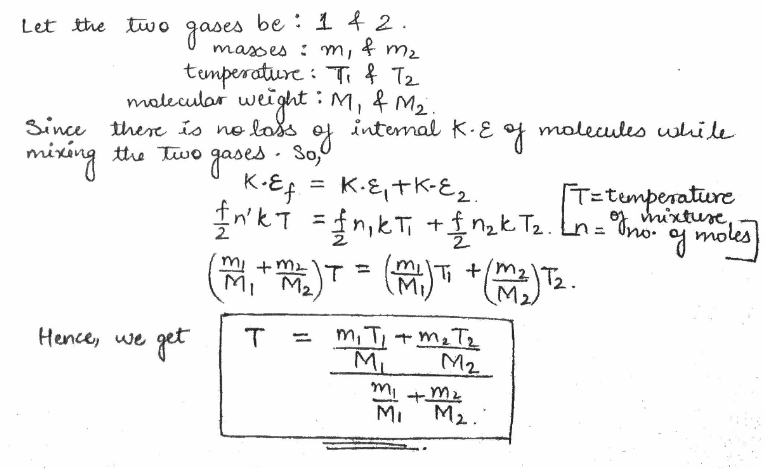 Let the two gases be : 1 & 2.
masses : m₁ & m₂
temperature : T₁ & T₂
molecular weight : M₁ & M₂.
Since there is no loss of internal K.E of molecules while
mixing the two gases. So,
K.E_f = K.E₁ + K.E₂.
f/2 n'kT = f/2 n₁kT₁ + f/2 n₂kT₂. [T = temperature of mixture, n = no. of moles]
(m₁/M₁ + m₂/M₂)T = (m₁/M₁)T₁ + (m₂/M₂)T₂.
Hence, we get T = (m₁T₁/M₁ + m₂T₂/M₂)/(m₁/M₁ + m₂/M₂).